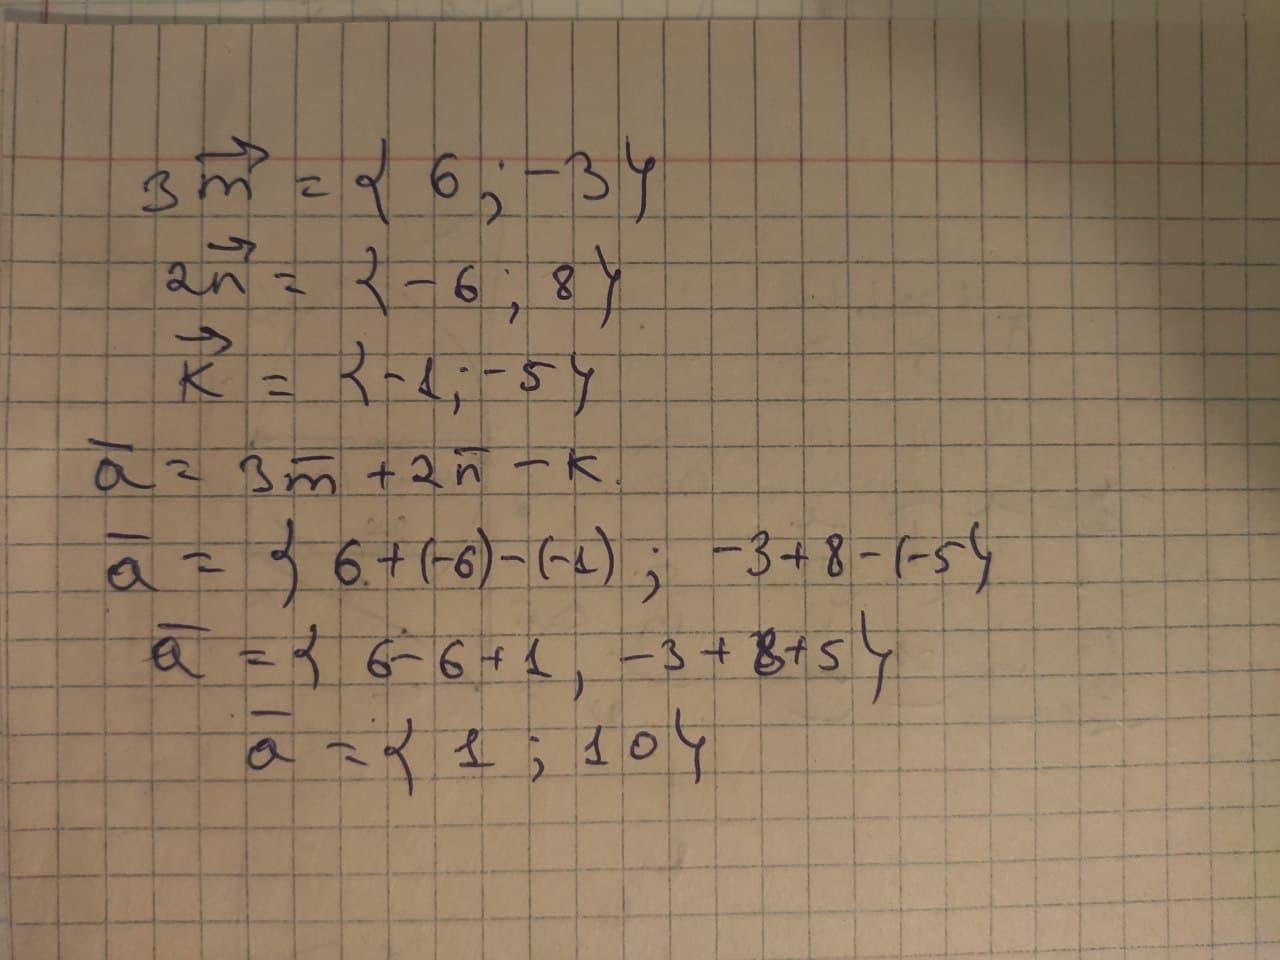 3m⃗ = { 6 ; -3}
2n⃗ = {-6 ; 8}
k⃗ = {-1 ; -5}
a̅ = 3m̅ + 2n̅ - k.
a̅ = { 6 + (-6) - (-1) ; -3 + 8 - (-5}
a̅ = { 6 - 6 + 1 , -3 + 8 + 5}
a̅ = { 1 ; 10}